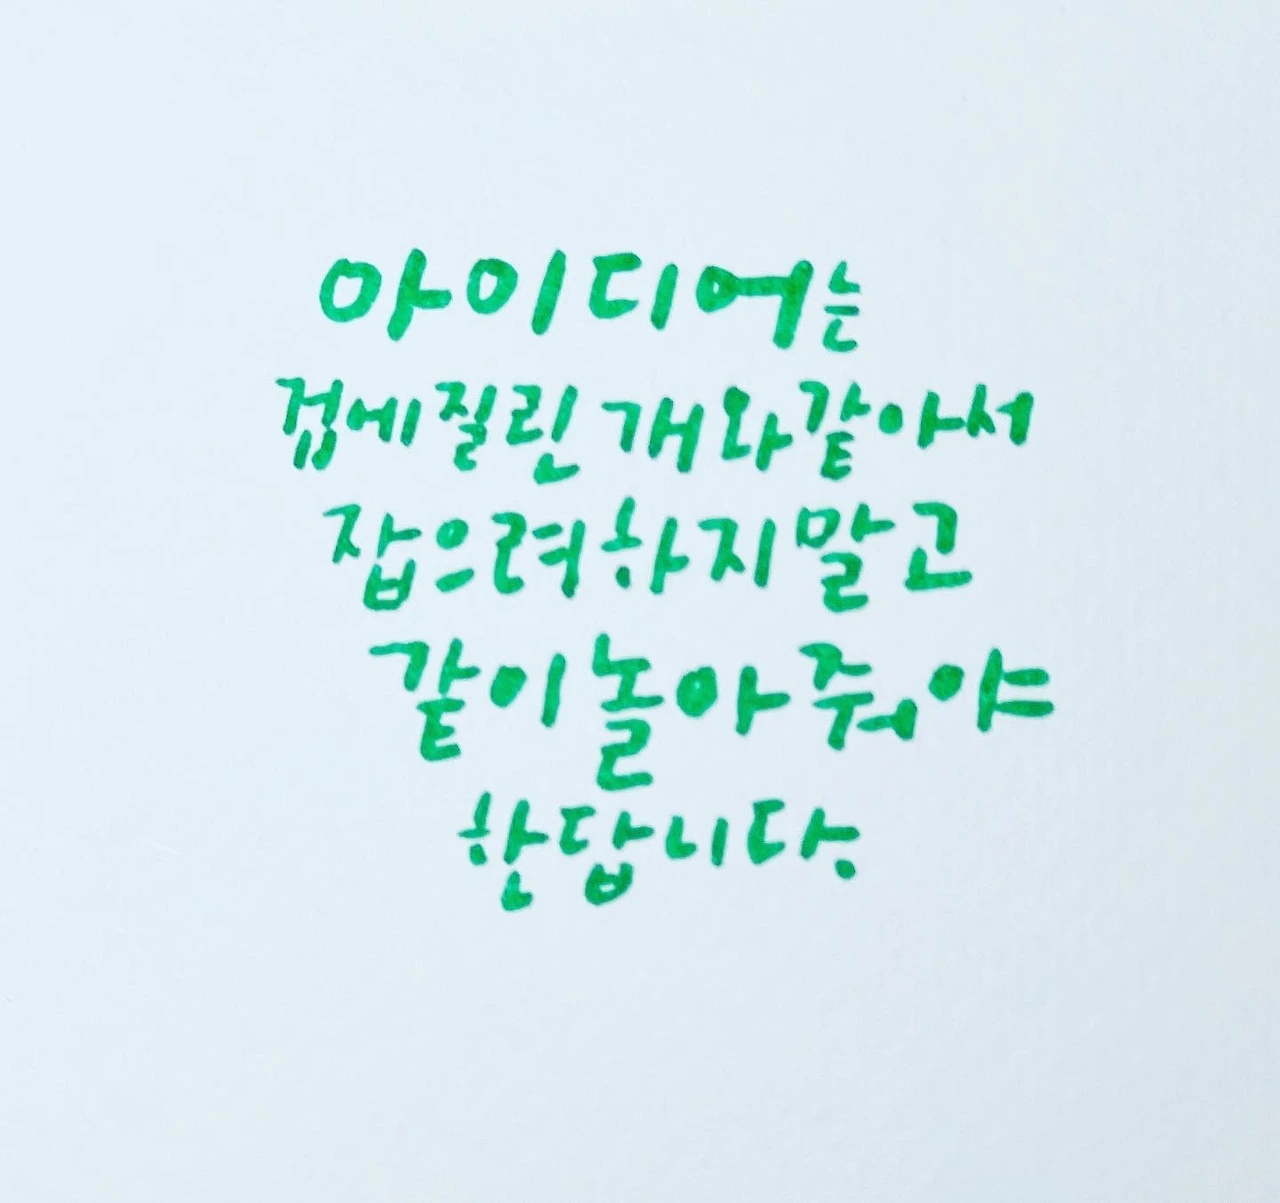 아이디어는
겁에 질린 개와 같아서
잡으려 하지 말고
같이 놀아줘야
한답니다.